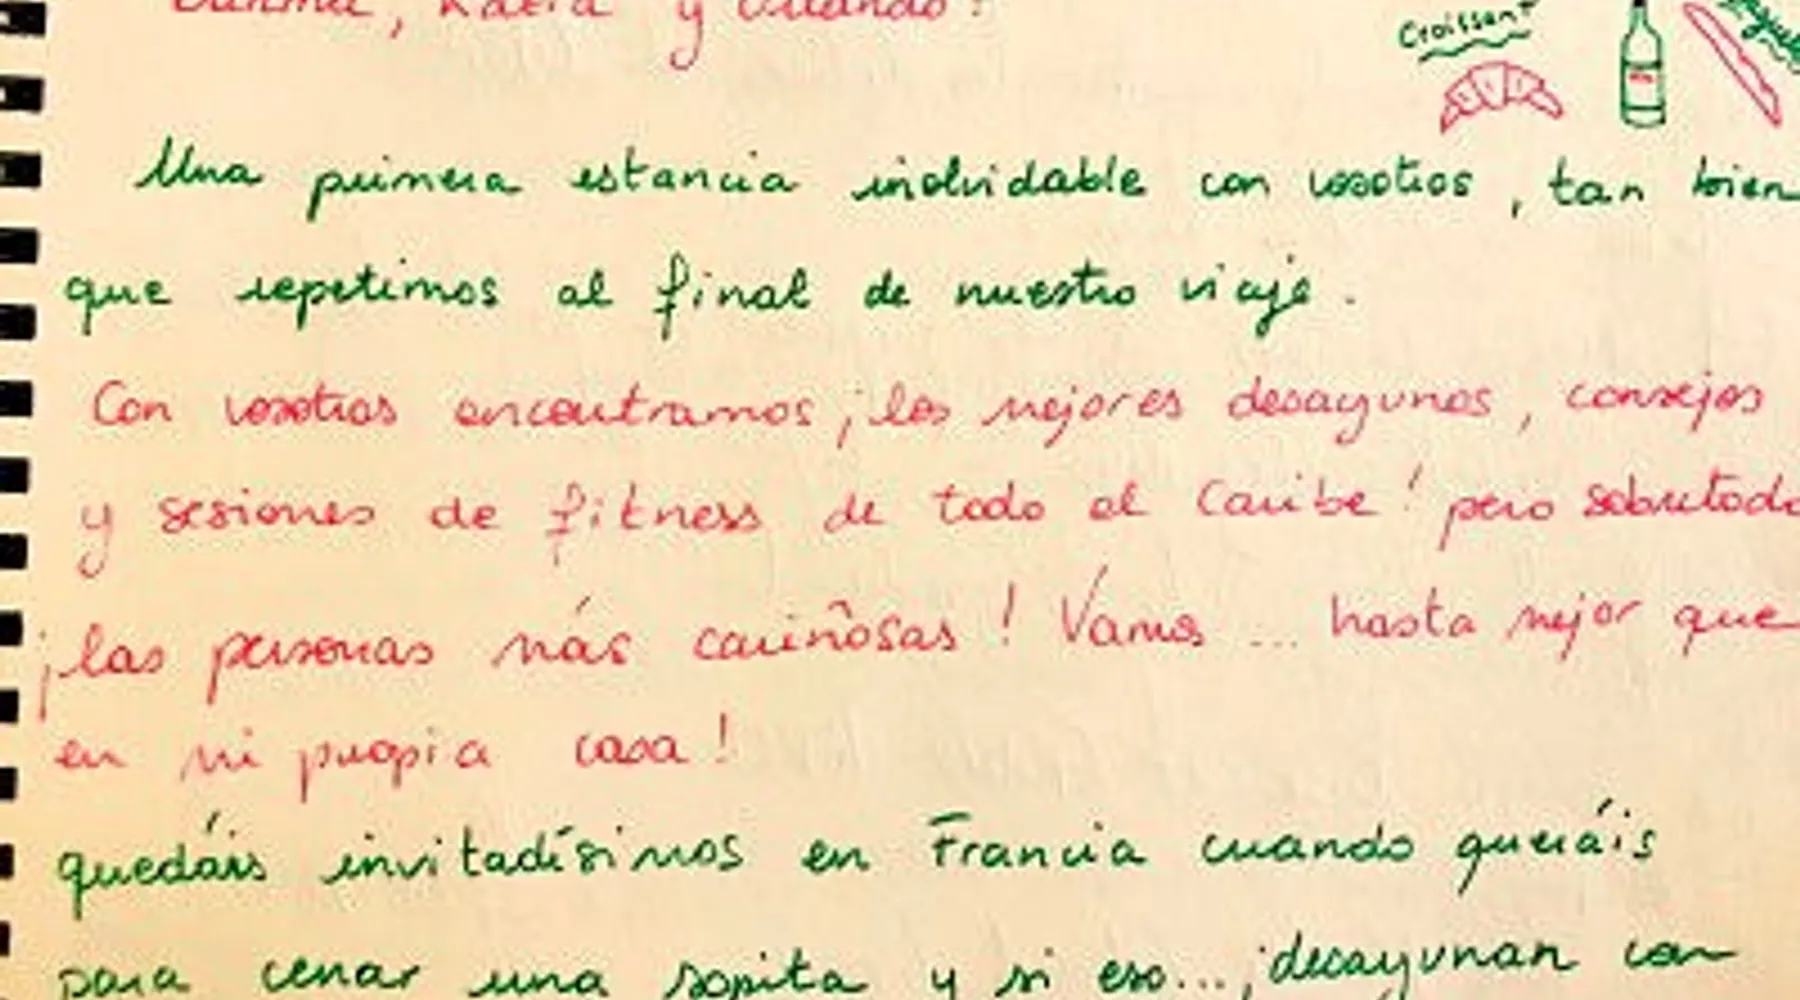 y
Croissant
Una primera estancia inolvidable con vosotros, tan bien
que repetimos al final de nuestro viaje.
Con vosotros encontramos ¡los mejores desayunos, consejos
y sesiones de fitness de todo el Caribe! pero sobretodo
¡las personas más cariñosas! Vamos ... hasta mejor que
en mi propia casa!
quedáis invitadísimos en Francia cuando queráis
para cenar una sopita y si eso... ¡desayunan con